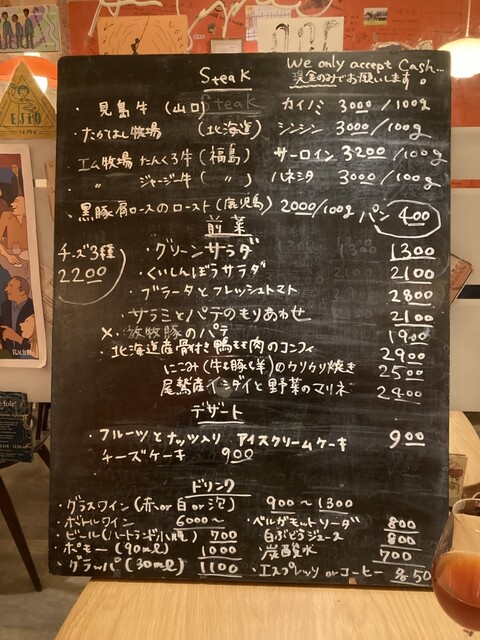 Steak
We only accept Cash...
現金のみでお願いします。
・見島牛 (山口) カイノミ 3000/100g
・たかはし牧場 (北海道) シンシン 3000/100g
・エム牧場 たんくろ牛 (福島) サーロイン 3200/100g
・ 〃 ジャージー牛 ( 〃 ) ハネシタ 3000/100g
・黒豚肩ロースのロースト (鹿児島) 2000/100g パン 400
前菜
チーズ3種
2200
・グリーンサラダ 1300
・くいしんぼうサラダ 2100
・ブラータとフレッシュトマト 2800
・サラミとパテのもりあわせ 2100
×・放牧豚のパテ 1900
・北海道産骨付き鴨もも肉のコンフィ 2900
にこごみ (牛も豚も羊)のカリカリ焼き 2500
尾鷲産イシダイと野菜のマリネ 2400
デザート
・フルーツとナッツ入り アイスクリームケーキ 900
・チーズケーキ 900
ドリンク
・グラスワイン (赤or白or泡) 900〜1300
・ボトルワイン 6000〜
・ビール (ハートランド小瓶) 700
・ポモー (90ml) 1000
・グラッパ (30ml) 1100
・ベルガモットソーダ 800
白ぶどうジュース 800
炭酸水 700
・エスプレッソorコーヒー 650